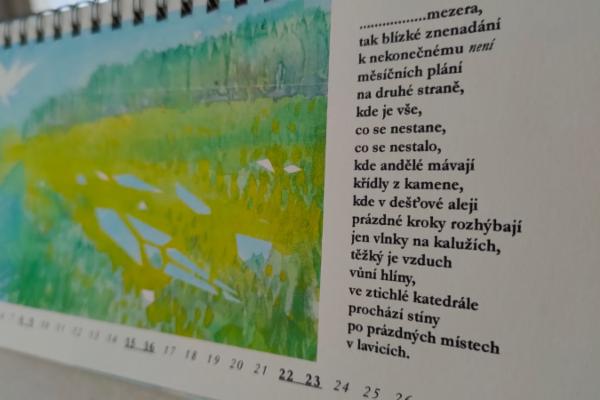 ..................mezera,
tak blízké znenadání
k nekonečnému není
měsíčních plání
na druhé straně,
kde je vše,
co se nestane,
co se nestalo,
kde andělé mávají
křídly z kamene,
kde v dešťové aleji
prázdné kroky rozhýbají
jen vlnky na kalužích,
těžký je vzduch
vůní hlíny,
ve ztichlé katedrále
prochází stíny
po prázdných místech
v lavicích.
7 8 9 10 11 12 13 14 15 16 17 18 19 20 21 22 23 24 25 26